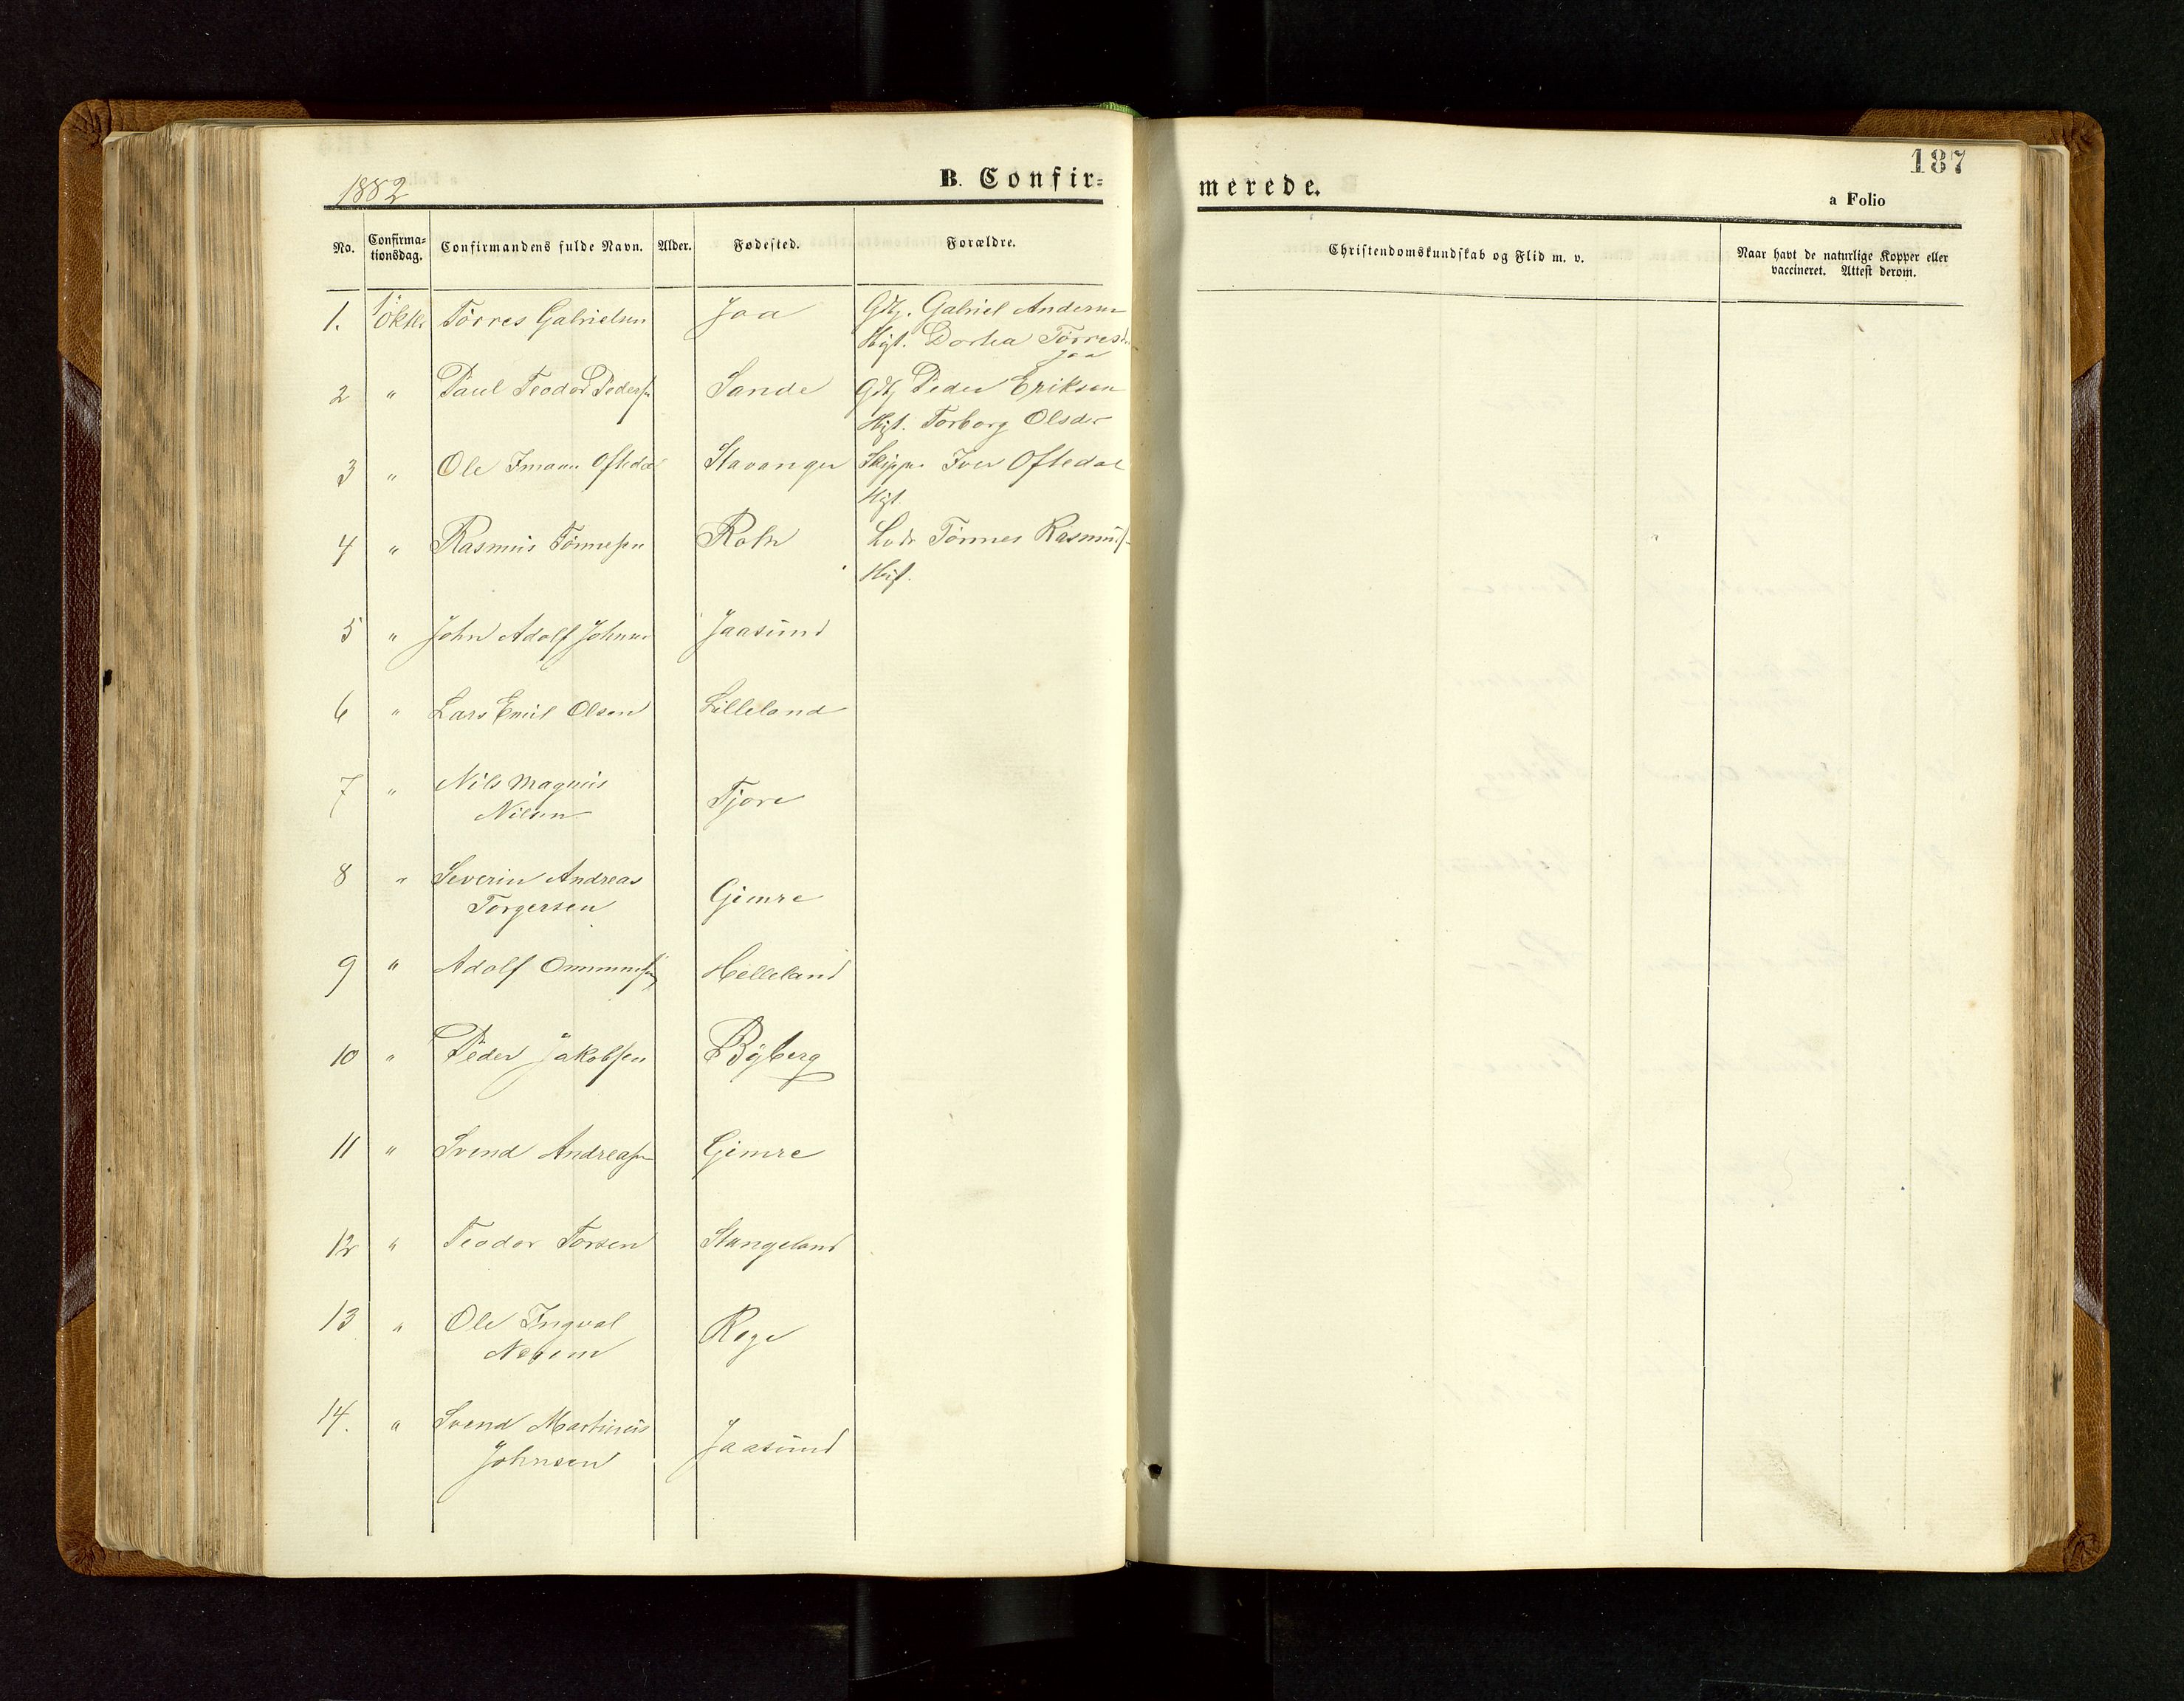 1882
B. Confir=
merede.
187
a Folio
No.
Confirma=
tionsdag.
Confirmandens fulde Navn.
Alder.
Fødested.
Forældre.
Christendomskundskab og Flid m. v.
Naar havt de naturlige Kopper eller
vaccineret. Attest derom.
1. 1 Oktbr Tørres Gabrielsen Jaa Gdbg. Gabriel Andersen
Hgt. Dorhea Tørresd.
Jaa
2 " Paul Teodor Peders Sande Gdbg Peder Eriksen
Hgt. Torborg Olsdr
3 " Ole Oftedal Stavanger Skipper Iver Oftedal
Hgt.
4 " Rasmus Tønnesen Tønnes Rasmus
Hgt.
5 " John Adolf Johnsen Jaasund
6 " Lars Emil Olsen Lilleland
7 " Nils Magnus
Nilsen Tjore
8 " Severin Andreas
Torgersen Gimre
9 " Adolf Ommunds Helleland
10 " Peder Jakobsen Byberg
11 " Svend Andreasen Gimre
12 " Teodor Torsen Stangeland
13 " Ole Ingval
Rege
14. " Svend Martinius
Johnsen Jaasund